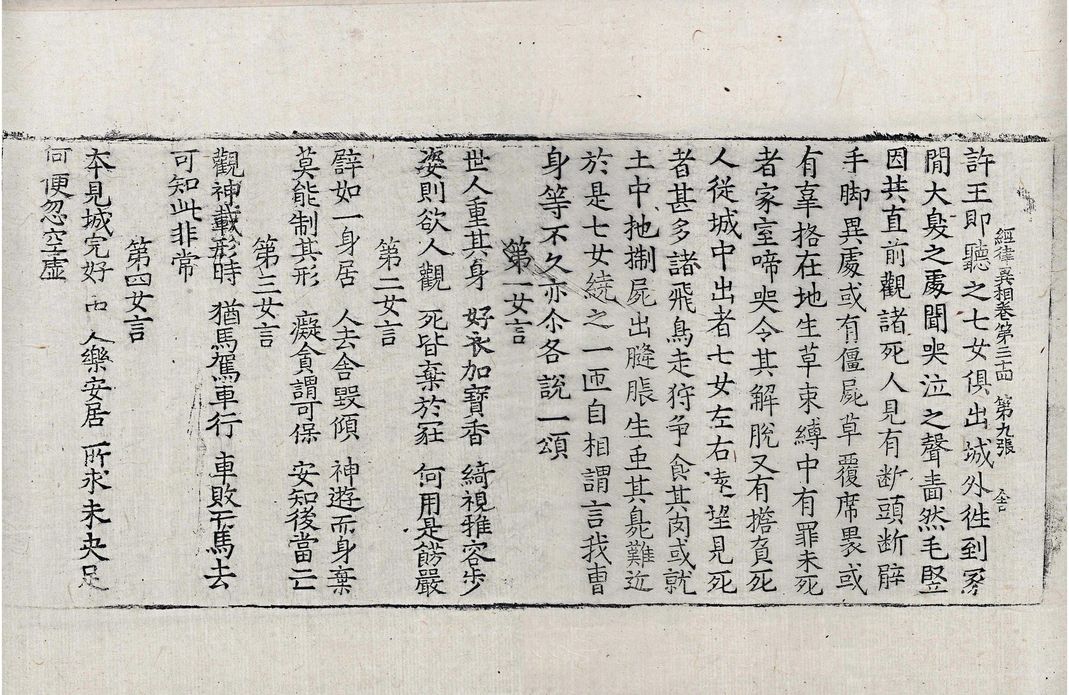 經律異相卷第三十四 第九張 舍
許王即聽之七女俱出城外徃到冢
閒大臰之處聞哭泣之聲肅然毛竪
因共直前觀諸死人見有断頭断臂
手脚異處或有僵屍草覆席褁或
有辜挌在地生草束縛中有罪未死
者家室啼哭令其解脫又有擔負死
人從城中出者七女左右遠望見死
者甚多諸飛鳥走狩爭食其肉或就
土中拖掣屍出膖脹生虫其臰難近
於是七女繞之一匝自相謂言我曹
身等不久亦尒各說一頌
第一女言
世人重其身 好衣加寶香 綺視雅容步
姿則欲人觀 死皆棄於冢 何用是餝嚴
第二女言
譬如一身居 人去舍毀傾 神遊而身棄
莫能制其形 癡貪謂可保 安知後當亡
第三女言
觀神載形時 猶馬駕車行 車敗而馬去
可知此非常
第四女言
夲見城完好 人樂安居 所求未央足
何便忽空虛